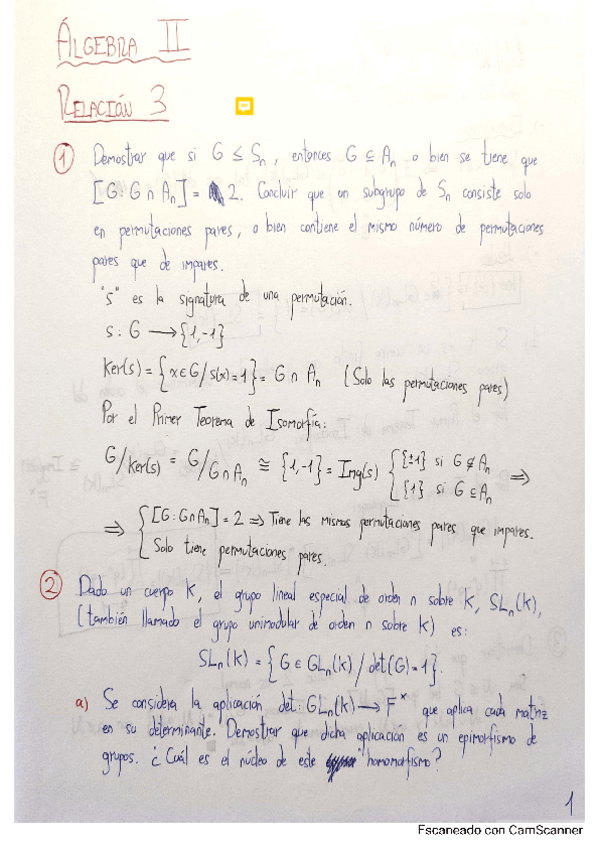 ÁLGEBRA II
RELACIÓN 3
① Demostrar que si G ≤ Sₙ, entonces G ⊆ Aₙ o bien se tiene que
[G: G ∩ Aₙ] = 2. Concluir que un subgrupo de Sₙ consiste solo
en permutaciones pares, o bien contiene el mismo número de permutaciones
pares que de impares.
"s" es la signatura de una permutación.
s: G ⟶ {1,-1}
Ker(s) = {x∈G / s(x) = 1} = G ∩ Aₙ (Solo las permutaciones pares)
Por el Primer Teorema de Isomorfía:
G/Ker(s) = G/G∩Aₙ ≅ {1,-1} = Img(s) { {±1} si G ⊈ Aₙ
{1} si G ⊆ Aₙ ⇒
⇒ { [G: G∩Aₙ] = 2 ⇒ Tiene las mismas permutaciones pares que impares.
Solo tiene permutaciones pares.
② Dado un cuerpo K, el grupo lineal especial de orden n sobre K, SLₙ(K),
(también llamado el grupo unimodular de orden n sobre K) es:
SLₙ(K) = {G ∈ GLₙ(K) / det(G) = 1}.
a) Se considera la aplicación det: GLₙ(K) ⟶ F* que aplica cada matriz
en su determinante. Demostrar que dicha aplicación es un epimorfismo de
grupos. ¿Cuál es el núcleo de este homomorfismo?
1
Escaneado con CamScanner